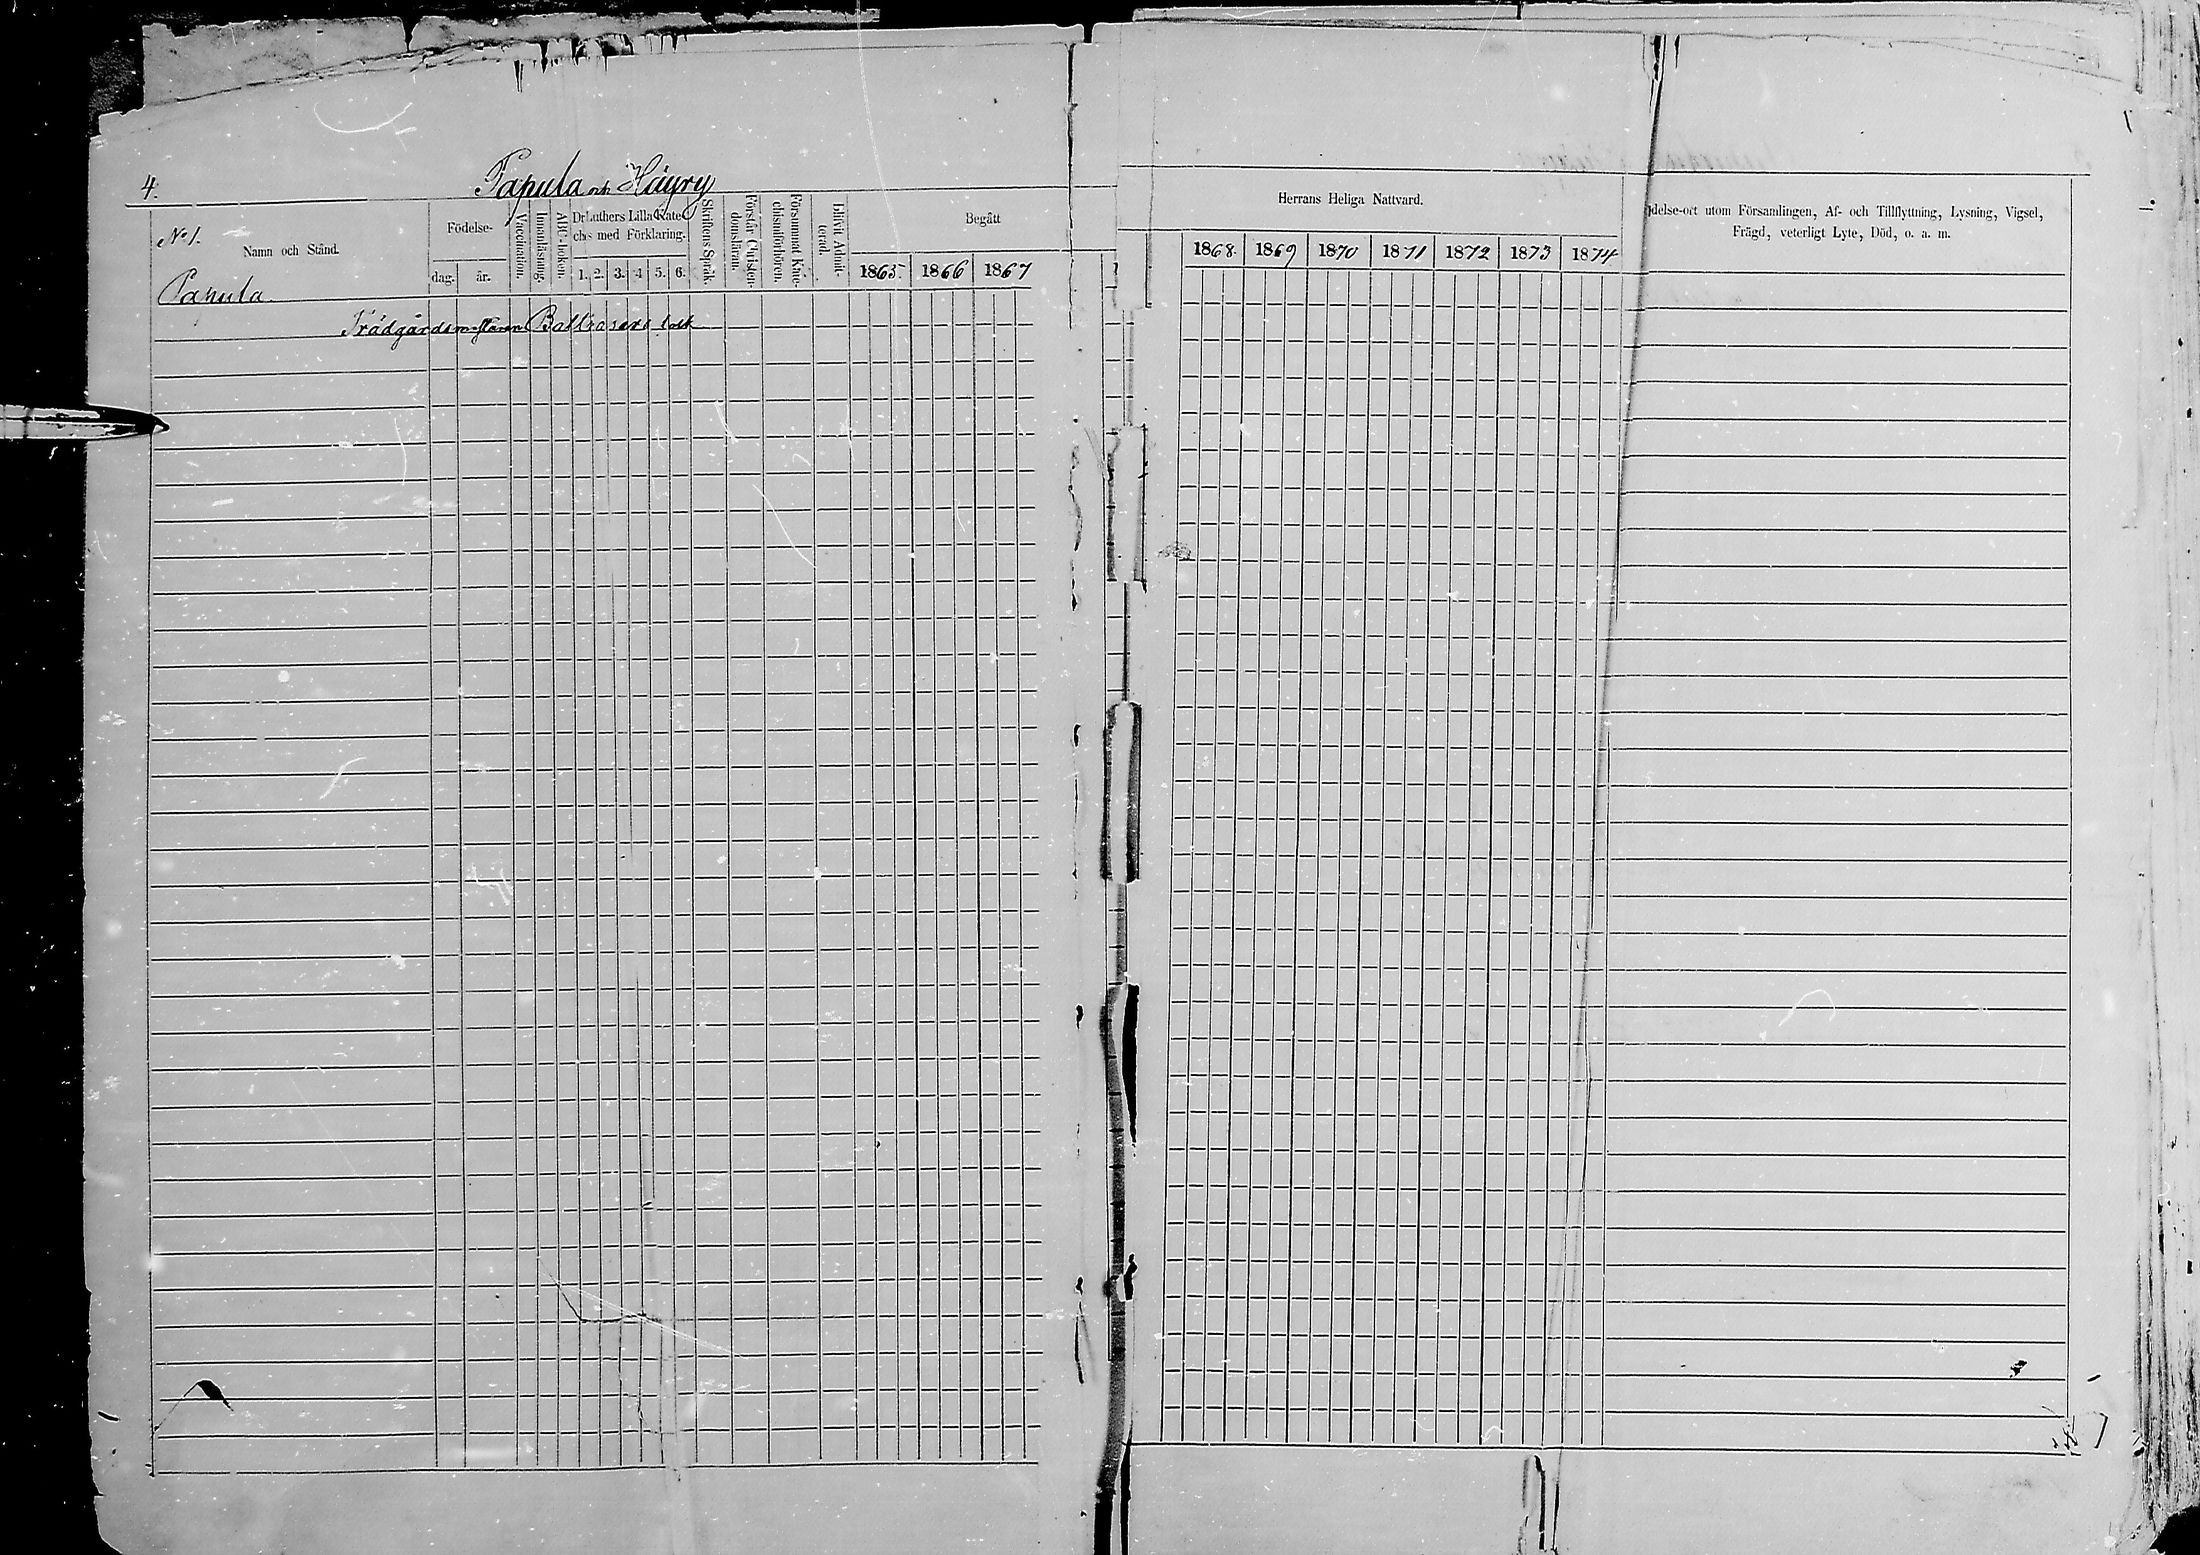 4.
Papula och Häyry
No 1.
Namn och Stånd.
Födelse-
dag.
år.
Vaccination.
Innanläsning.
ABC-boken.
Dr Luthers Lilla Kate-
ches med Förklaring.
1. 2. 3. 4 5. 6.
Skriftens Språk.
Förstår Christen-
domsläran.
Försummat Kate-
chismiförhören.
Blifvit Admit-
terad.
Begått
1865. 1866 1867
Papula.
Trädgårdsmästaren
Herrans Heliga Nattvard.
1868. 1869 1870 1871 1872 1873 1874
delse-ort utom Församlingen, Af- och Tillflyttning, Lysning, Vigsel,
Frägd, veterligt Lyte, Död, o. a. m.